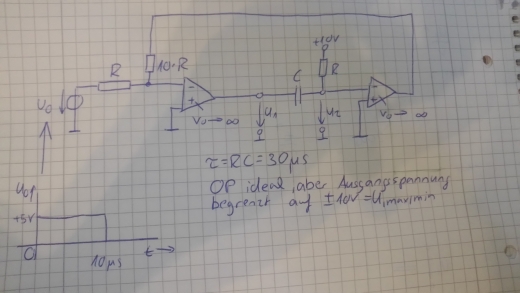 +10V
10·R
R
C
R
-
+
-
+
U₀
V₀→∞
U₁
U₂
V₀→∞
τ=RC=30µs
OP ideal, aber Ausgangsspannung
begrenzt auf ±10V = U₁max/min
U₀
+5V
0
10µs
t→